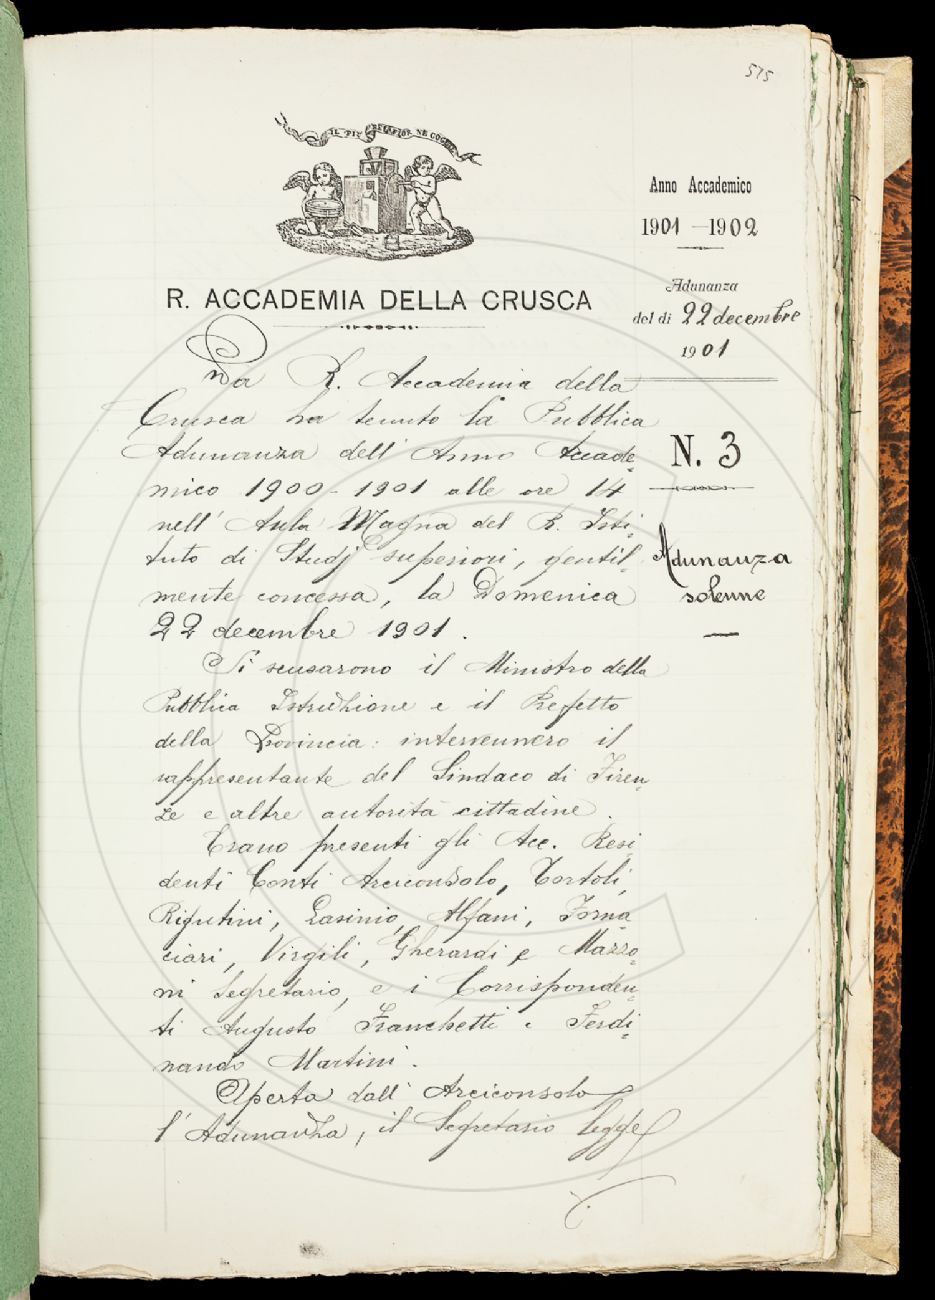 575
IL PIÙ BEL FIOR NE COGLIE
Anno Accademico
1901-1902
Adunanza
del di 22 decembre
1901
R. ACCADEMIA DELLA CRUSCA
N. 3
Adunanza
solenne
La R. Accademia della
Crusca ha tenuto la Pubblica
Adunanza dell' Anno Accade-
mico 1900-1901 alle ore 14
nell' Aula Magna del R. Isti-
tuto di Studj superiori, gentil-
mente concessa, la Domenica
22 decembre 1901.
Si scusarono il Ministro della
Pubblica Istruzione e il Prefetto
della Provincia: intervennero il
rappresentante del Sindaco di Firen-
ze e altre autorità cittadine.
Erano presenti gli Acc. Resi-
denti Conti Arciconsolo, Tortoli,
Rigutini, Lasinio, Alfani, Forna-
ciari, Virgili, Gherardi e Mazzo-
ni Segretario, e i Corrisponden-
ti Augusto Franchetti e Ferdi-
nando Martini.
Aperta dall' Arciconsolo
l'Adunanza, il Segretario legge